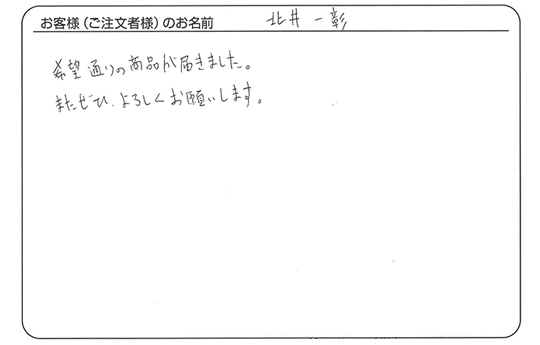 お客様（ご注文者様）のお名前 北井 一彰
希望通りの商品が届きました。
またぜひ、よろしくお願いします。